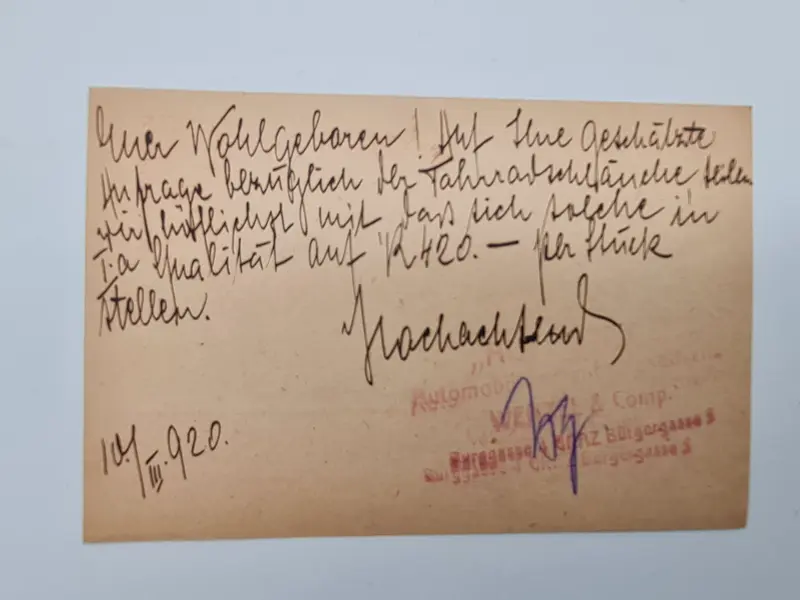 Euer Wohlgeboren! Auf Ihre geschätzte
Anfrage bezüglich der Fahrradschläuche teilen
wir höflichst mit dass sich solche in
I.a Qualität auf K 420.— per Stück
stellen.
Hochachtend
Automob
& Comp.
Burggasse 4 GRAZ Bürgergasse 3
Burggasse 4 GRAZ Bürgergasse 3
10./III.920.